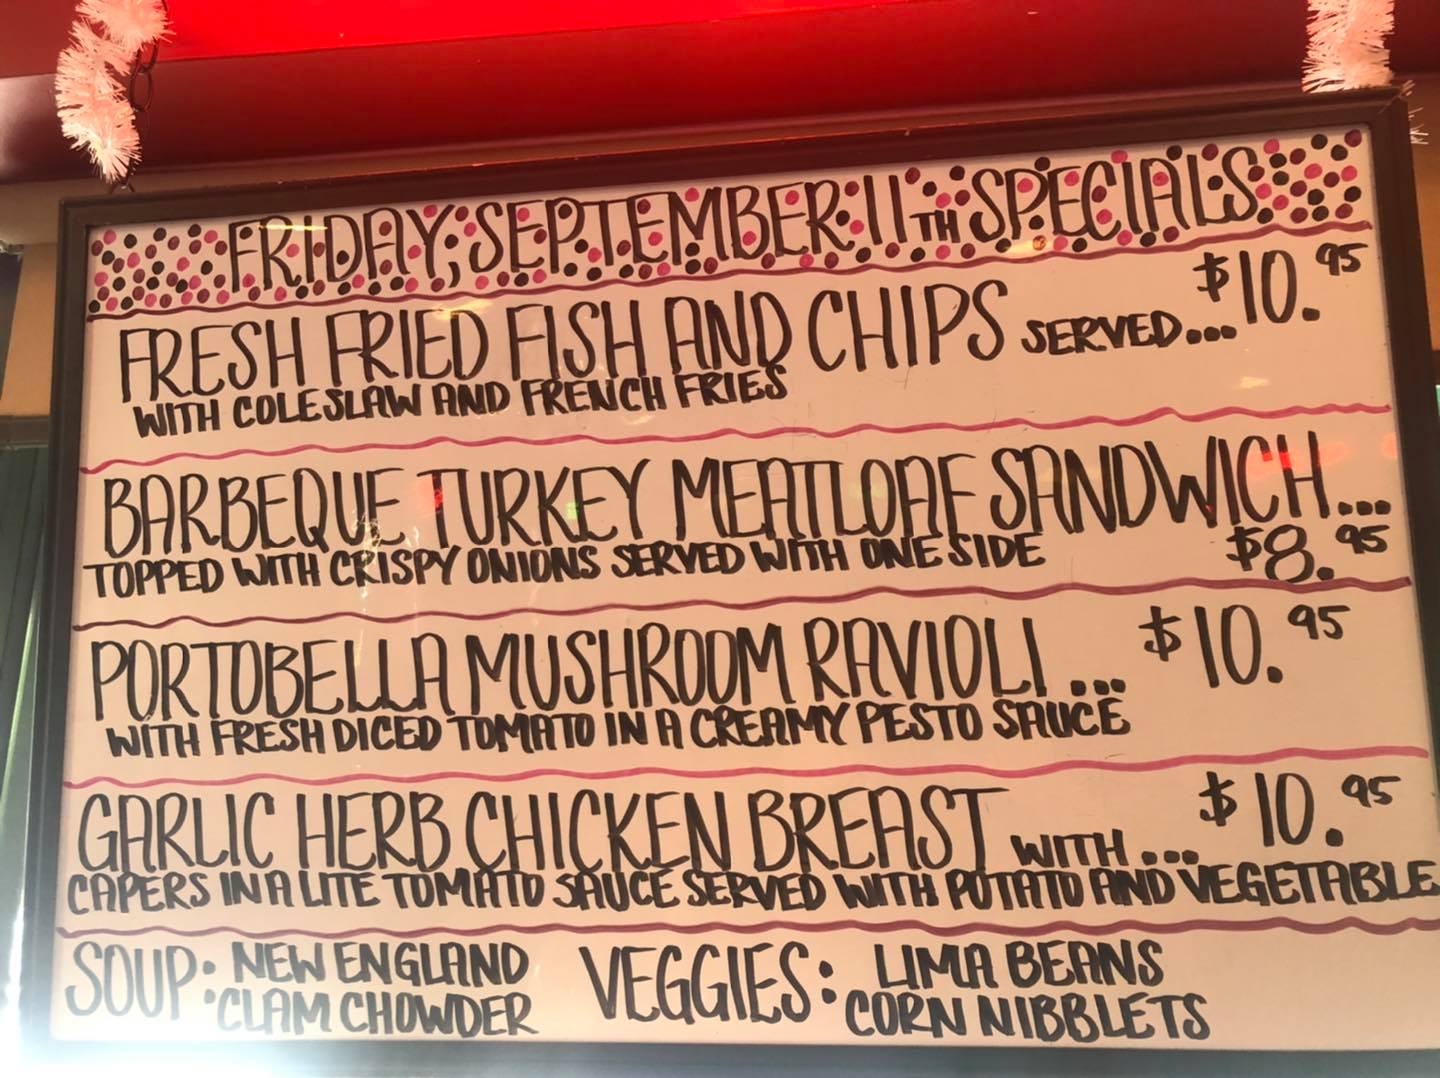 FRIDAY, SEPTEMBER 11TH SPECIALS
FRESH FRIED FISH AND CHIPS SERVED... $10.95
WITH COLESLAW AND FRENCH FRIES
BARBEQUE TURKEY MEATLOAF SANDWICH...
TOPPED WITH CRISPY ONIONS SERVED WITH ONE SIDE $8.95
PORTOBELLA MUSHROOM RAVIOLI ... $10.95
WITH FRESH DICED TOMATO IN A CREAMY PESTO SAUCE
GARLIC HERB CHICKEN BREAST WITH ... $10.95
CAPERS IN A LITE TOMATO SAUCE SERVED WITH POTATO AND VEGETABLE
SOUP: NEW ENGLAND
CLAM CHOWDER
VEGGIES: LIMA BEANS
CORN NIBBLETS